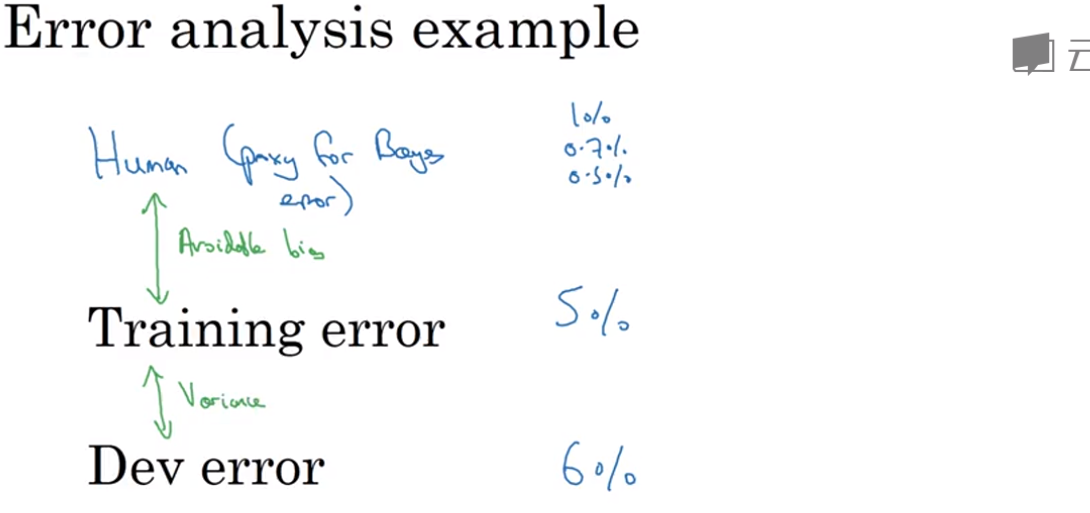 Error analysis example
云
Human (proxy for Bayes
error)
1%
0.7%
0.5%
Avoidable bias
Training error
5%
Variance
Dev error
6%